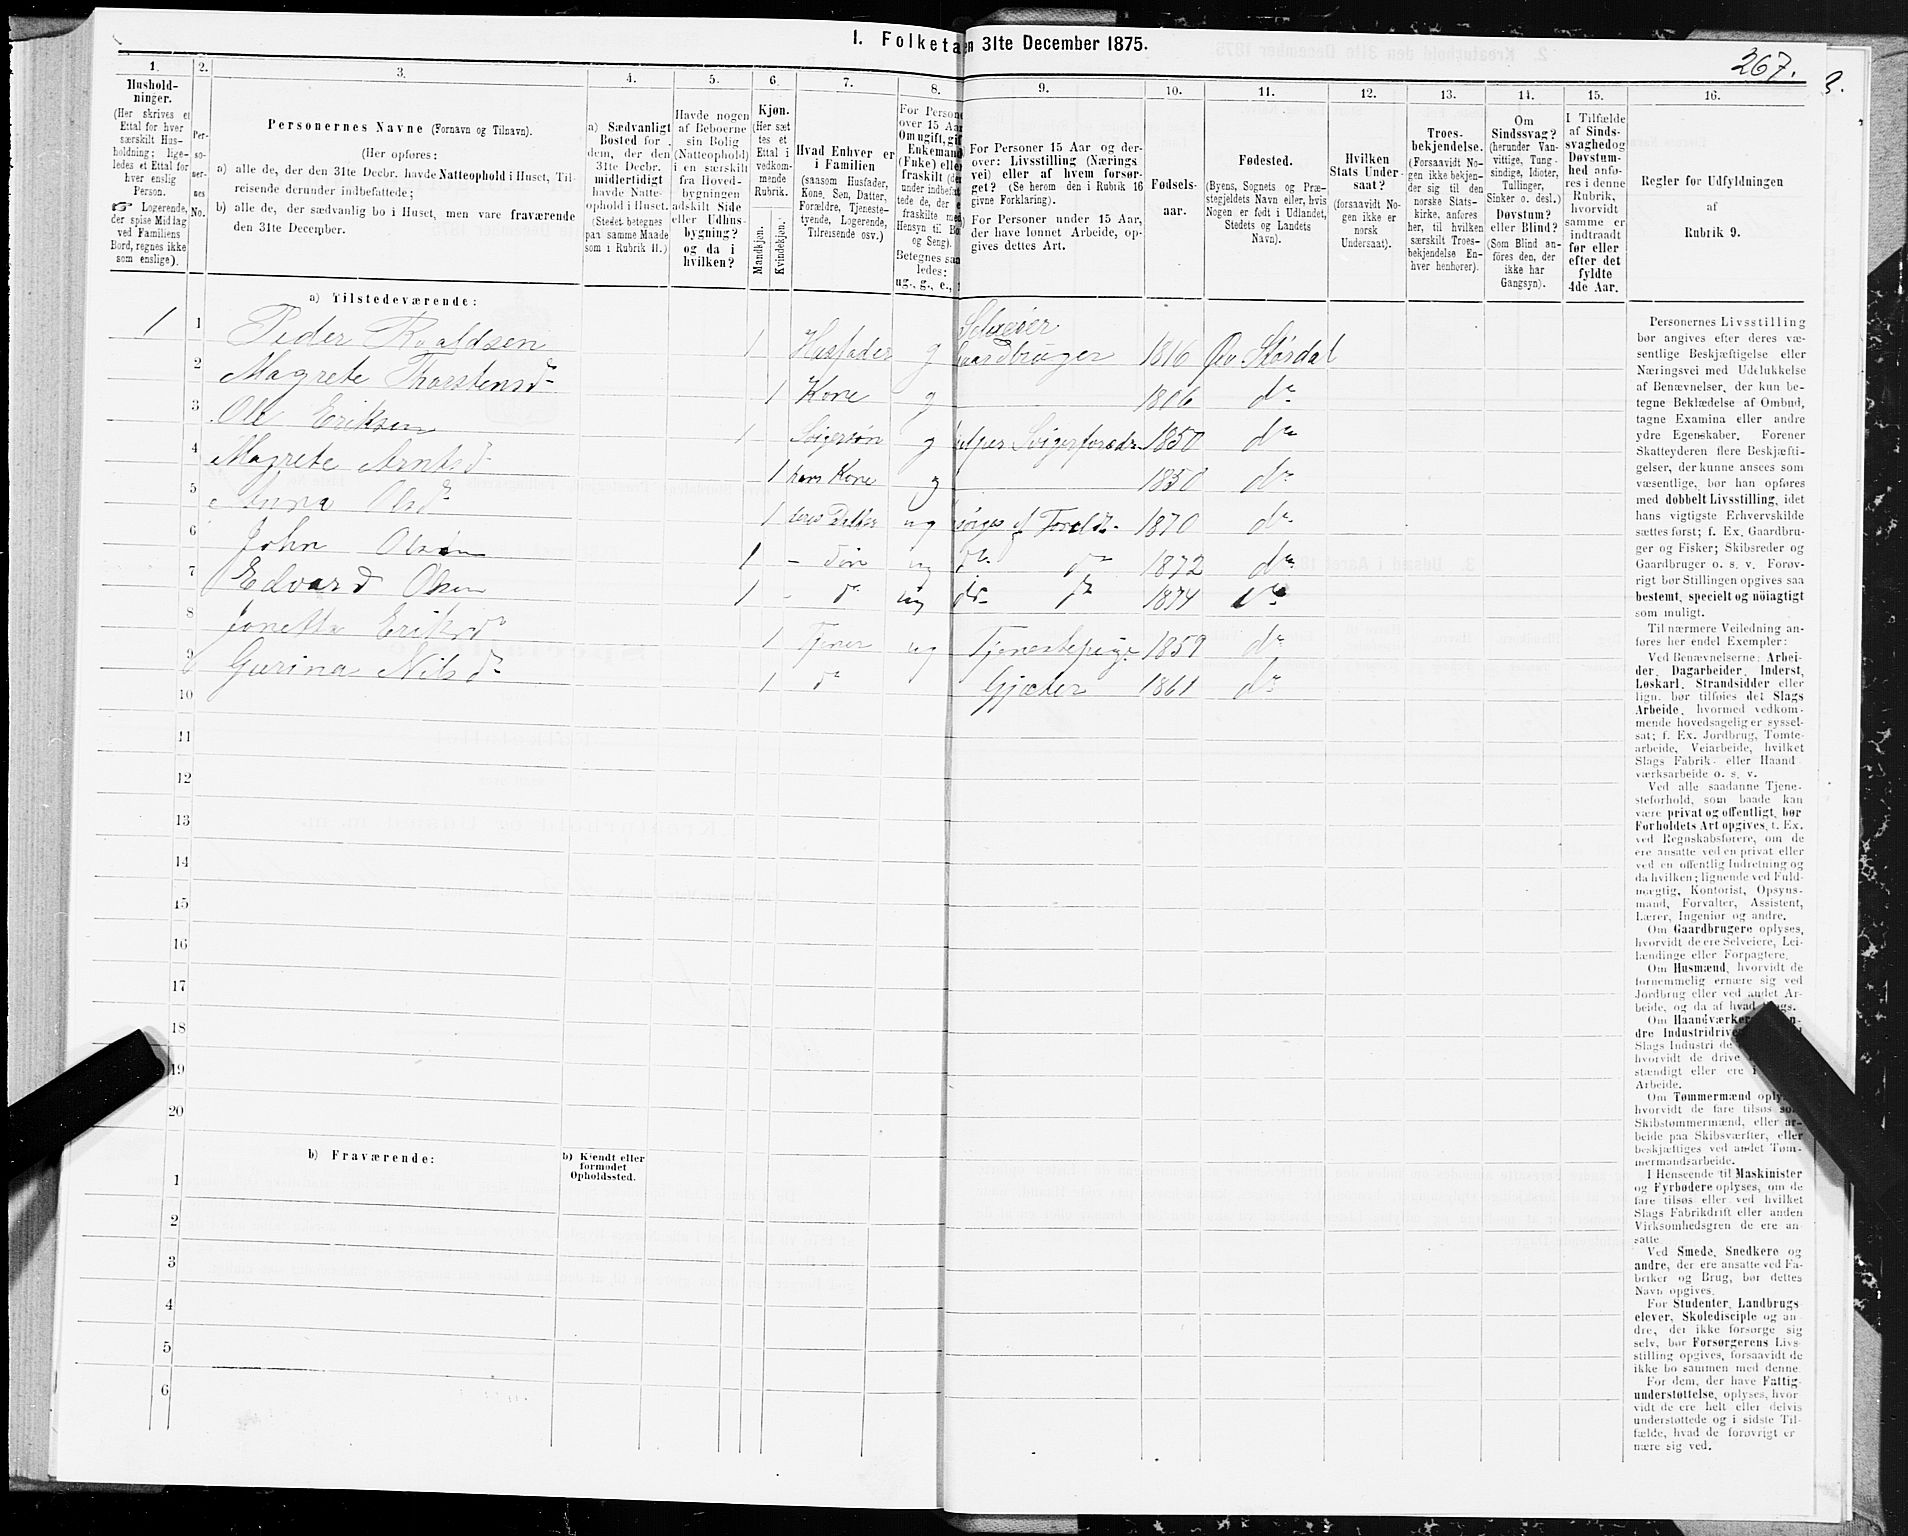 I. Folketa en 31te December 1875.
267.
3.
1.
Hushold-
ninger.
(Her skrives et
Ettal for hver
særskilt Hus-
holdning; lige-
ledes et Ettal for
hver enslig
Person.
Logerende,
der spise Middag
ved Familiens
Bord, regnes ikke
som enslige).
2.
Per-
so-
ner-
nes
No.
3.
Personernes Navne (Fornavn og Tilnavn).
(Her opføres:
a) alle de, der den 31te Decbr. havde Natteophold i Huset, Til-
reisende derunder indbefattede;
b) alle de, der sædvanlig bo i Huset, men vare fraværende
den 31te December.
4.
a) Sædvanligt
Bosted for
dem, der den
31te Decbr.
midlertidigt
havde Natte-
ophold i Huset.
(Stedet betegnes
paa samme Maade
som i Rubrik 11.)
5.
Havde nogen
af Beboerne
sin Bolig
(Natteophold)
i en særskilt
fra Hoved-
bygningen
adskilt Side
eller Udhus-
bygning?
og da i
hvilken?
6.
Kjøn.
(Her sæt
tes et
Ettal i
vedkom-
mende
Rubrik.
Mandkjøn.
Kvindekjøn.
7.
Hvad Enhver er
i Familien
(saasom Husfader,
Kone, Søn, Datter,
Forældre, Tjeneste-
tyende, Logerende,
Tilreisende osv.)
8.
For Persone
over 15 Aar
Om ugift, gif
Enkemand
(Enke) elle
fraskilt (de
under indbefat
tede de, der e
fraskilte med
Hensyn til Bo
og Seng).
Betegnes saa
ledes:
ug., g., e.,
9.
For Personer 15 Aar og der-
over: Livsstilling (Nærings
vei) eller af hvem forsør-
get? (Se herom den i Rubrik 16
givne Forklaring).
For Personer under 15 Aar,
der have lønnet Arbeide, op-
gives dettes Art.
10.
Fødsels-
aar.
11.
Fødested.
(Byens, Sognets og Præ-
stegjeldets Navn eller, hvis
Nogen er født i Udlandet,
Stedets og Landets
Navn).
12.
Hvilken
Stats Under-
saat?
(forsaavidt No-
gen ikke er
norsk
Undersaat).
13.
Troes-
bekjendelse.
(Forsaavidt No-
gen ikke bekjen-
der sig til den
norske Stats-
kirke, anføres
her, til hvilken
særskilt Troes-
bekjendelse En-
hver henhører).
14.
Om
Sindssvag?
(herunder Van-
vittige, Tung-
sindige, Idioter,
Tullinger,
Sinker o. desl.)
Døvstum?
eller Blind?
(Som Blind an-
føres den, der
ikke har
Gangsyn).
15.
I Tilfælde
af Sinds-
svaghed og
Døvstum-
hed anfø-
res i denne
Rubrik,
hvorvidt
samme er
indtraadt
før eller
efter det
fyldte
4de Aar.
16.
Regler for Udfyldningen
af
Rubrik 9.
a) Tilstedeværende:
1 1 Peder Roaldsen 1 Husfader g Selveier Gaardbruger 1816 Øv Størdal
2 Magrete Thorstensdr 1 Kone g 1816 do
3 Ole Eriksen 1 Svigersøn g 1850 do
4 Magrete Arntsd 1 hans Kone g 1850 do
5 Anna Olsdr 1 deres Datter ug 1870 do
6 John Olsøn 1 - Søn ug do do 1872 do
7 Edvard Olsen 1 - do ug do do 1874 do
8 Jonetta Eriksdr 1 Tjener ug Tjenestepige 1859 do
9 Gurina Nilsdr 1 do Gjæter 1861 do
10
11
12
13
14
15
16
17
18
19
20
b) Fraværende:
b) Kjendt eller
formodet
Opholdssted.
1
2
3
4
5
6
Personernes Livsstilling
bør angives efter deres væ-
sentlige Beskjæftigelse eller
Næringsvei med Udelukkelse
af Benævnelser, der kun be-
tegne Beklædelse af Ombud,
tagne Examina eller andre
ydre Egenskaber. Forener
Skatteyderen flere Beskjæfti-
gelser, der kunne ansees som
væsentlige, bør han opføres
med dobbelt Livsstilling, idet
hans vigtigste Erhvervskilde
sættes først; f. Ex. Gaardbru-
ger og Fisker; Skibsreder og
Gaardbruger o. s. v. Forøv-
rigt bør Stillingen opgives saa
bestemt, specielt og nöiagtigt
som muligt.
Til nærmere Veiledning an-
føres her endel Exempler:
Ved Benævnelserne: Arbei-
der, Dagarbeider, Inderst,
Løskarl, Strandsidder eller
lign. bør tilføies det Slags
Arbeide, hvormed vedkom-
mende hovedsagelig er syssel-
sat; f. Ex. Jordbrug, Tomte-
arbeide, Veiarbeide, hvilket
Slags Fabrik- eller Haand-
værksarbeide o. s. v.
Ved alle saadanne Tjene-
steforhold, som baade kan
være privat og offentligt, bør
Forholdets Art opgives, t. Ex.
ved Regnskabsførere, om de
ere ansatte ved en privat eller
ved en offentlig Indretning og
da hvilken; lignende ved Fuld-
mægtig, Kontorist, Opsyns-
mand, Forvalter, Assistent,
Lærer, Ingeniør og andre.
Om Gaardbrugere oplyses,
hvorvidt de ere Selveiere, Lei-
lændinge eller Forpagtere.
Om Husmænd, hvorvidt de
fornemmelig ernære sig ved
Jordbrug eller ved andet Ar-
beide, og da af hvad Slags.
Om Haandværkere
dre Industridrive
Slags Industri de
hvorvidt de drive
stændigt eller ere
Arbeide.
Om Tømmermænd oply
hvorvidt de fare tilsøs som
Skibstømmermænd, eller ar-
beide paa Skibsværfter, eller
beskjæftiges ved andet Tøm-
mermandsarbeide.
I Henseende til Maskinister
og Fyrbødere oplyses, om de
fare tilsøs eller ved hvilket
Slags Fabrikdrift eller anden
Virksomhedsgren de ere an-
satte.
Ved Smede, Snedkere og
andre, der ere ansatte ved Fa-
briker og Brug, bør dettes
Navn opgives.
For Studenter, Landbrugs
elever, Skoledisciple og an-
dre, der ikke forsørge sig
selv, bør Forsørgerens Livs-
stilling opgives, forsaavidt de
ikke bo sammen med denne.
For dem, der have Fattig-
understøttelse, oplyses, hvor
vidt de ere helt eller delvis
understøttede og i sidste Til-
fælde, hvad de forøvrigt er
nære sig ved.